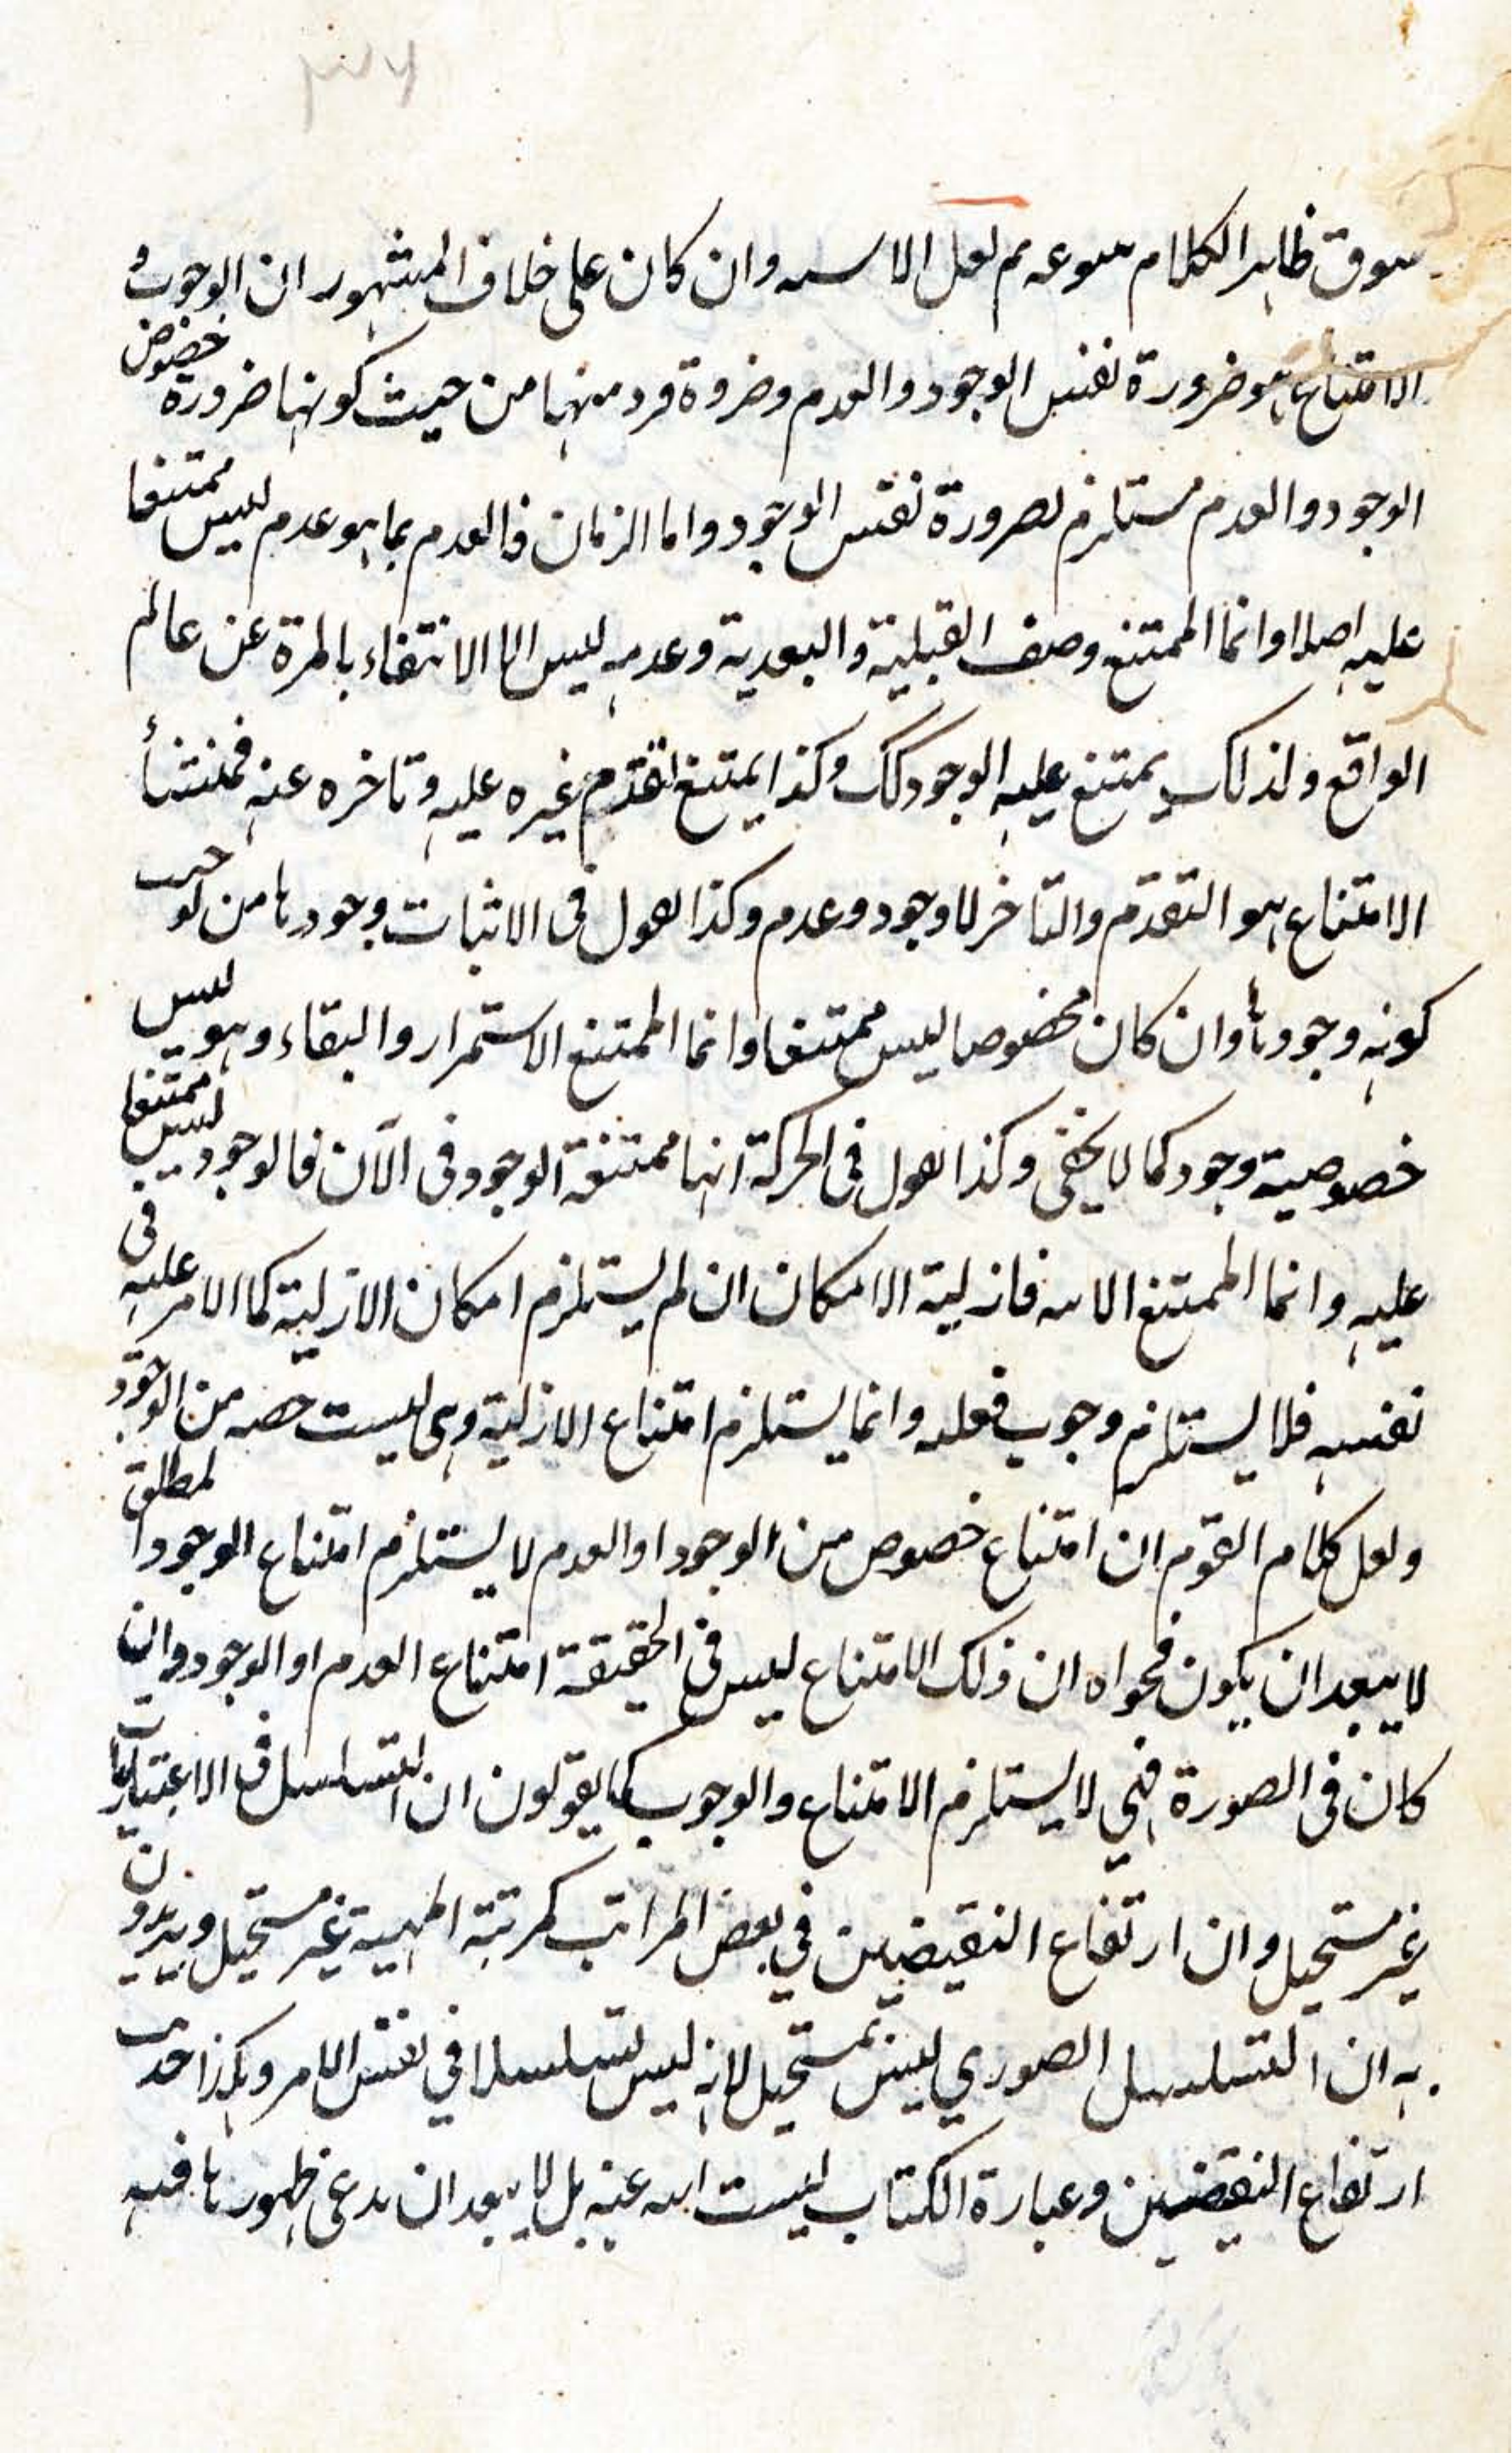 سوق ظاهر الكلام ثم لعل الاسد وان كان على خلاف المشهور ان الوجوب و
الامتناع هو ضرورة نفس الوجود والعدم وضروة فرد منهما من حيث كونها ضرورة خصوص
الوجود والعدم مستلزم لضرورة نفس الوجود واما الزمان فالعدم بما هو عدم ليس ممتنعا
عليه اصلا وانما الممتنع وصف القبلية والبعدية وعدمه ليس الا الانتفاء بالمرة عن عالم
الواقع ولذلك يمتنع عليه الوجود كك وكذا يمتنع تقدم غيره عليه وتاخره عنه فمنشأ
الامتناع هو التقدم والتاخر لا وجود وعدم وكذا القول فى الاثبات وجودها من حيث
كونه وجودها وان كان مخصوصا ليس ممتنعا وانما الممتنع الاستمرار والبقاء وهو ليس
خصوصية وجود كما لا يخفى وكذا القول فى الحركة انها ممتنعة الوجود فى الآن فالوجود ليس ممتنعا
عليه وانما الممتنع فازلية الامكان ان لم يستلزم امكان الازلية كما الامر عليه فى
نفسه فلا يستلزم وجوب فعله وانما يستلزم امتناع الازلية وهى ليست حصه من الوجود
ولعل كلام القوم ان امتناع خصوص من الوجود او العدم لا يستلزم امتناع الوجود المطلق
لا يبعد ان يكون فحواه ان ذلك الامتناع ليس فى الحقيقة امتناع العدم او الوجود وان
كان فى الصورة فهى لا يستلزم الامتناع والوجوب كما يقولون ان التسلسل فى الاعتباريات
غير مستحيل وان ارتفاع النقيضين في بعض المراتب كمرتبة المهية غير مستحيل ويريدون
به ان التسلسل الصوري ليس بمستحيل لانه ليس تسلسلا في نفس الامر وهكذا حديث
ارتفاع النقيضين وعبارة الكتاب ليست ابيه عنه بل لا يبعد ان يدعى ظهورها فيه